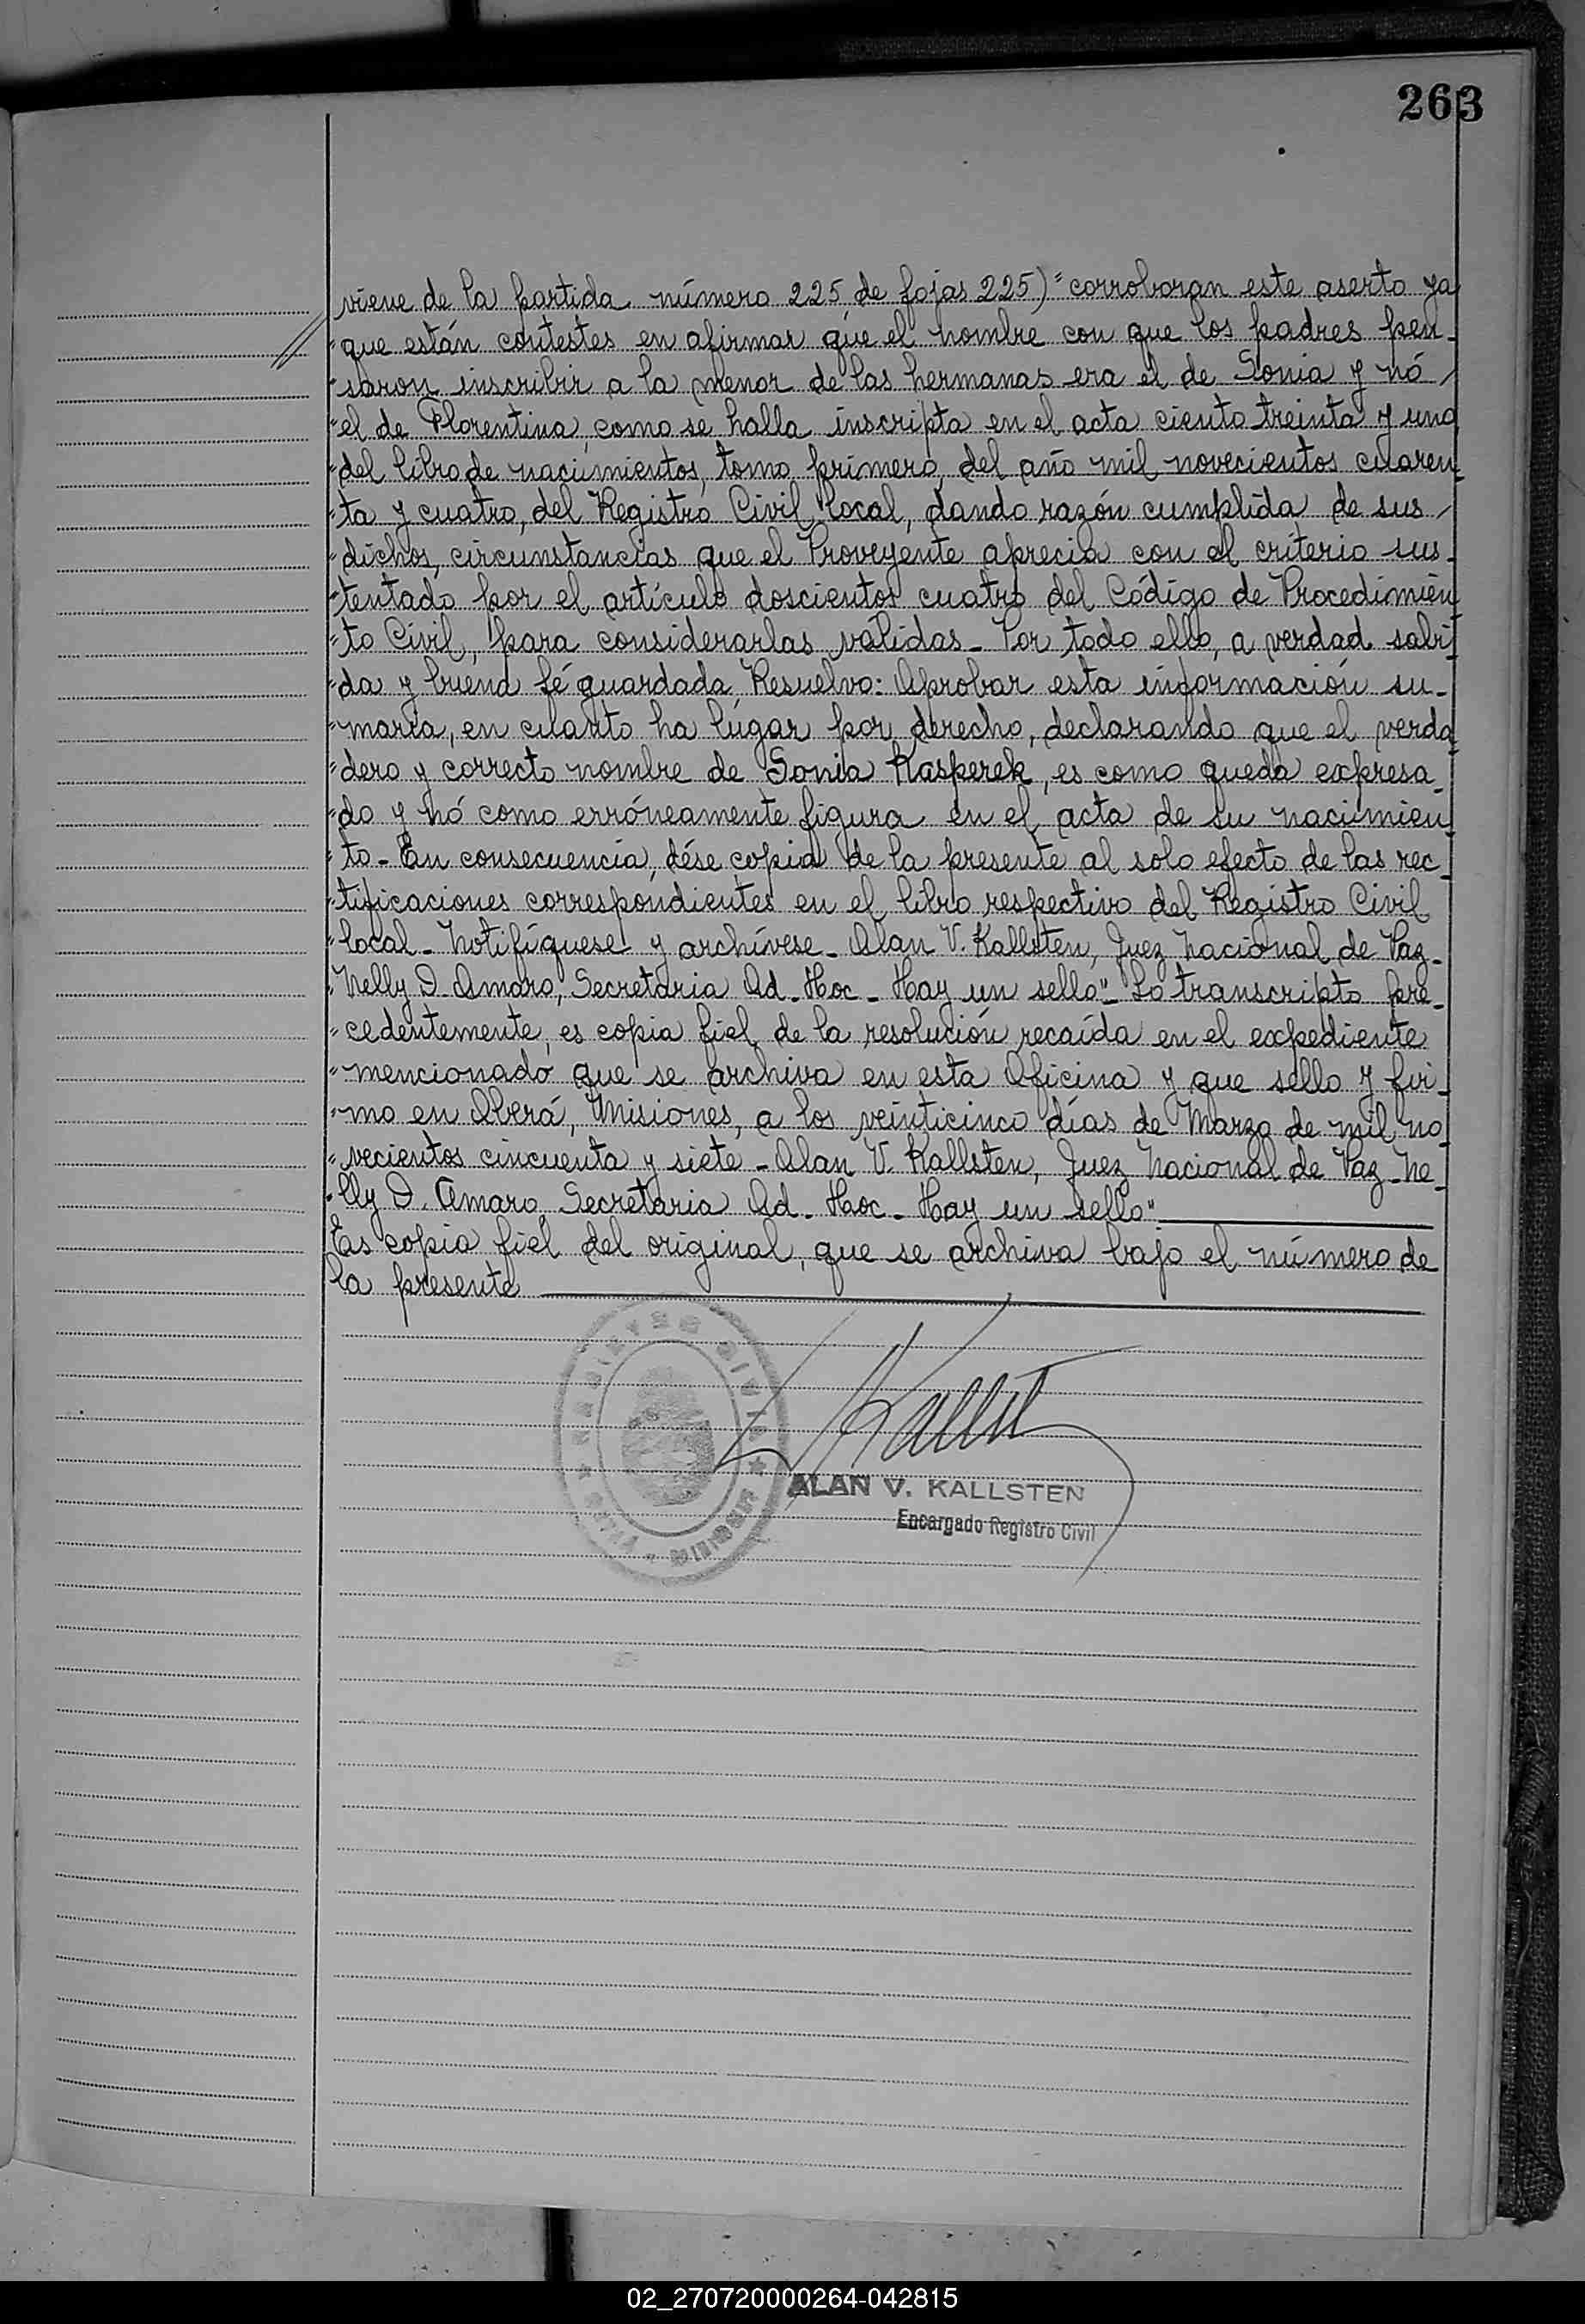 263
viene de la partida número 225 de fojas 225) "corroboran este aserto ya
"que están contestes en afirmar que el nombre con que los padres pen-
"saron inscribir a la menor de las hermanas era el de Sonia y nó
"el de Florentina, como se halla inscripta en el acta ciento treinta y una
"del libro de nacimientos, tomo primero, del año mil novecientos cuaren-
"ta y cuatro, del Registro Civil local, dando razón cumplida de sus
"dichos, circunstancias que el Proveyente aprecia con el criterio sus-
"tentado por el artículo doscientos cuatro del Código de Procedimien-
"to Civil, para considerarlas válidas - Por todo ello, a verdad sabi-
"da y buena fé guardada, Resuelvo: Aprobar esta información su-
"maria, en cuanto ha lugar por derecho, declarando que el verda-
"dero y correcto nombre de Sonia Kasperek, es como queda expresa-
"do y nó como erróneamente figura en el acta de su nacimien-
"to - En consecuencia, dése copia de la presente al solo efecto de las rec-
"tificaciones correspondientes en el libro respectivo del Registro Civil
"local - Notifíquese y archívese - Alan V. Kallsten, Juez Nacional de Paz -
"Nelly D. Amaro, Secretaria Ad - Hoc - Hay un sello" - Lo transcripto pre-
"cedentemente, es copia fiel de la resolución recaída en el expediente
"mencionado que se archiva en esta Oficina y que sello y fir-
"mo en Oberá, Misiones, a los veinticinco días de Marzo de mil no-
"vecientos cincuenta y siete - Alan V. Kallsten, Juez Nacional de Paz - Ne-
"lly D. Amaro, Secretaria Ad - Hoc - Hay un sello"
Es copia fiel del original, que se archiva bajo el número de
la presente
ALAN V. KALLSTEN
Encargado Registro Civil
02_270720000264-042815